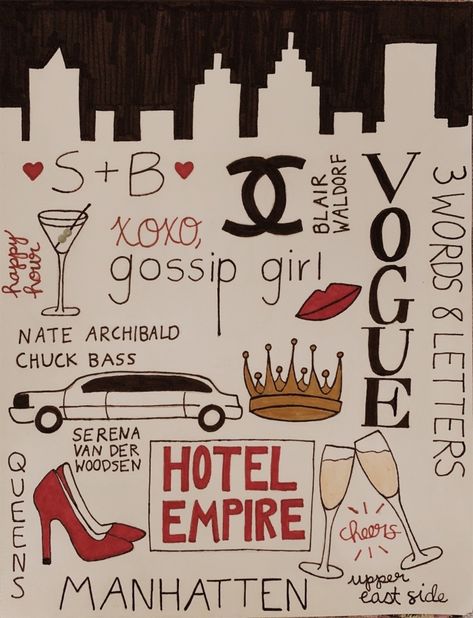 S + B
BLAIR
WALDORF
VOGUE
3 WORDS 8 LETTERS
happy
hour
xoxo,
gossip girl
NATE ARCHIBALD
CHUCK BASS
SERENA
VAN DER
WOODSEN
QUEENS
HOTEL
EMPIRE
cheers
upper
east side
MANHATTEN